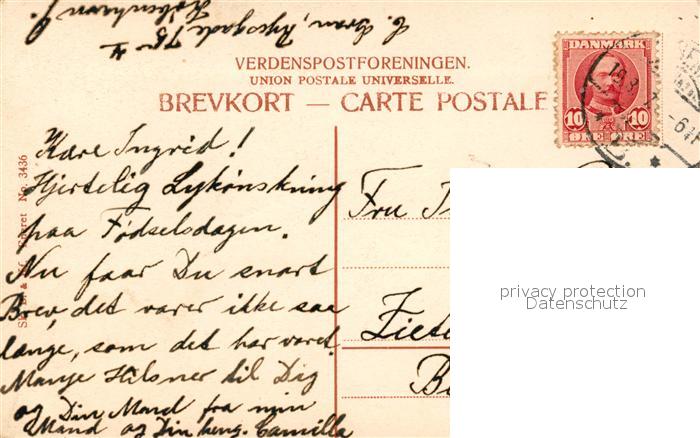 VERDENSPOSTFORENINGEN.
UNION POSTALE UNIVERSELLE.
BREVKORT — CARTE POSTALE
DANMARK
10 10
ØRE ØRE
No. 3436
Kære Ingrid!
Hjertelig Lykønskning
paa Fødselsdagen.
Nu faar Du snart
Brev, det varer ikke saa
længe, som det har varet.
Mange Hilsner til Dig
og Din Mand fra min
Mand og Din heng. Camilla
Fru
privacy protection
Datenschutz
København